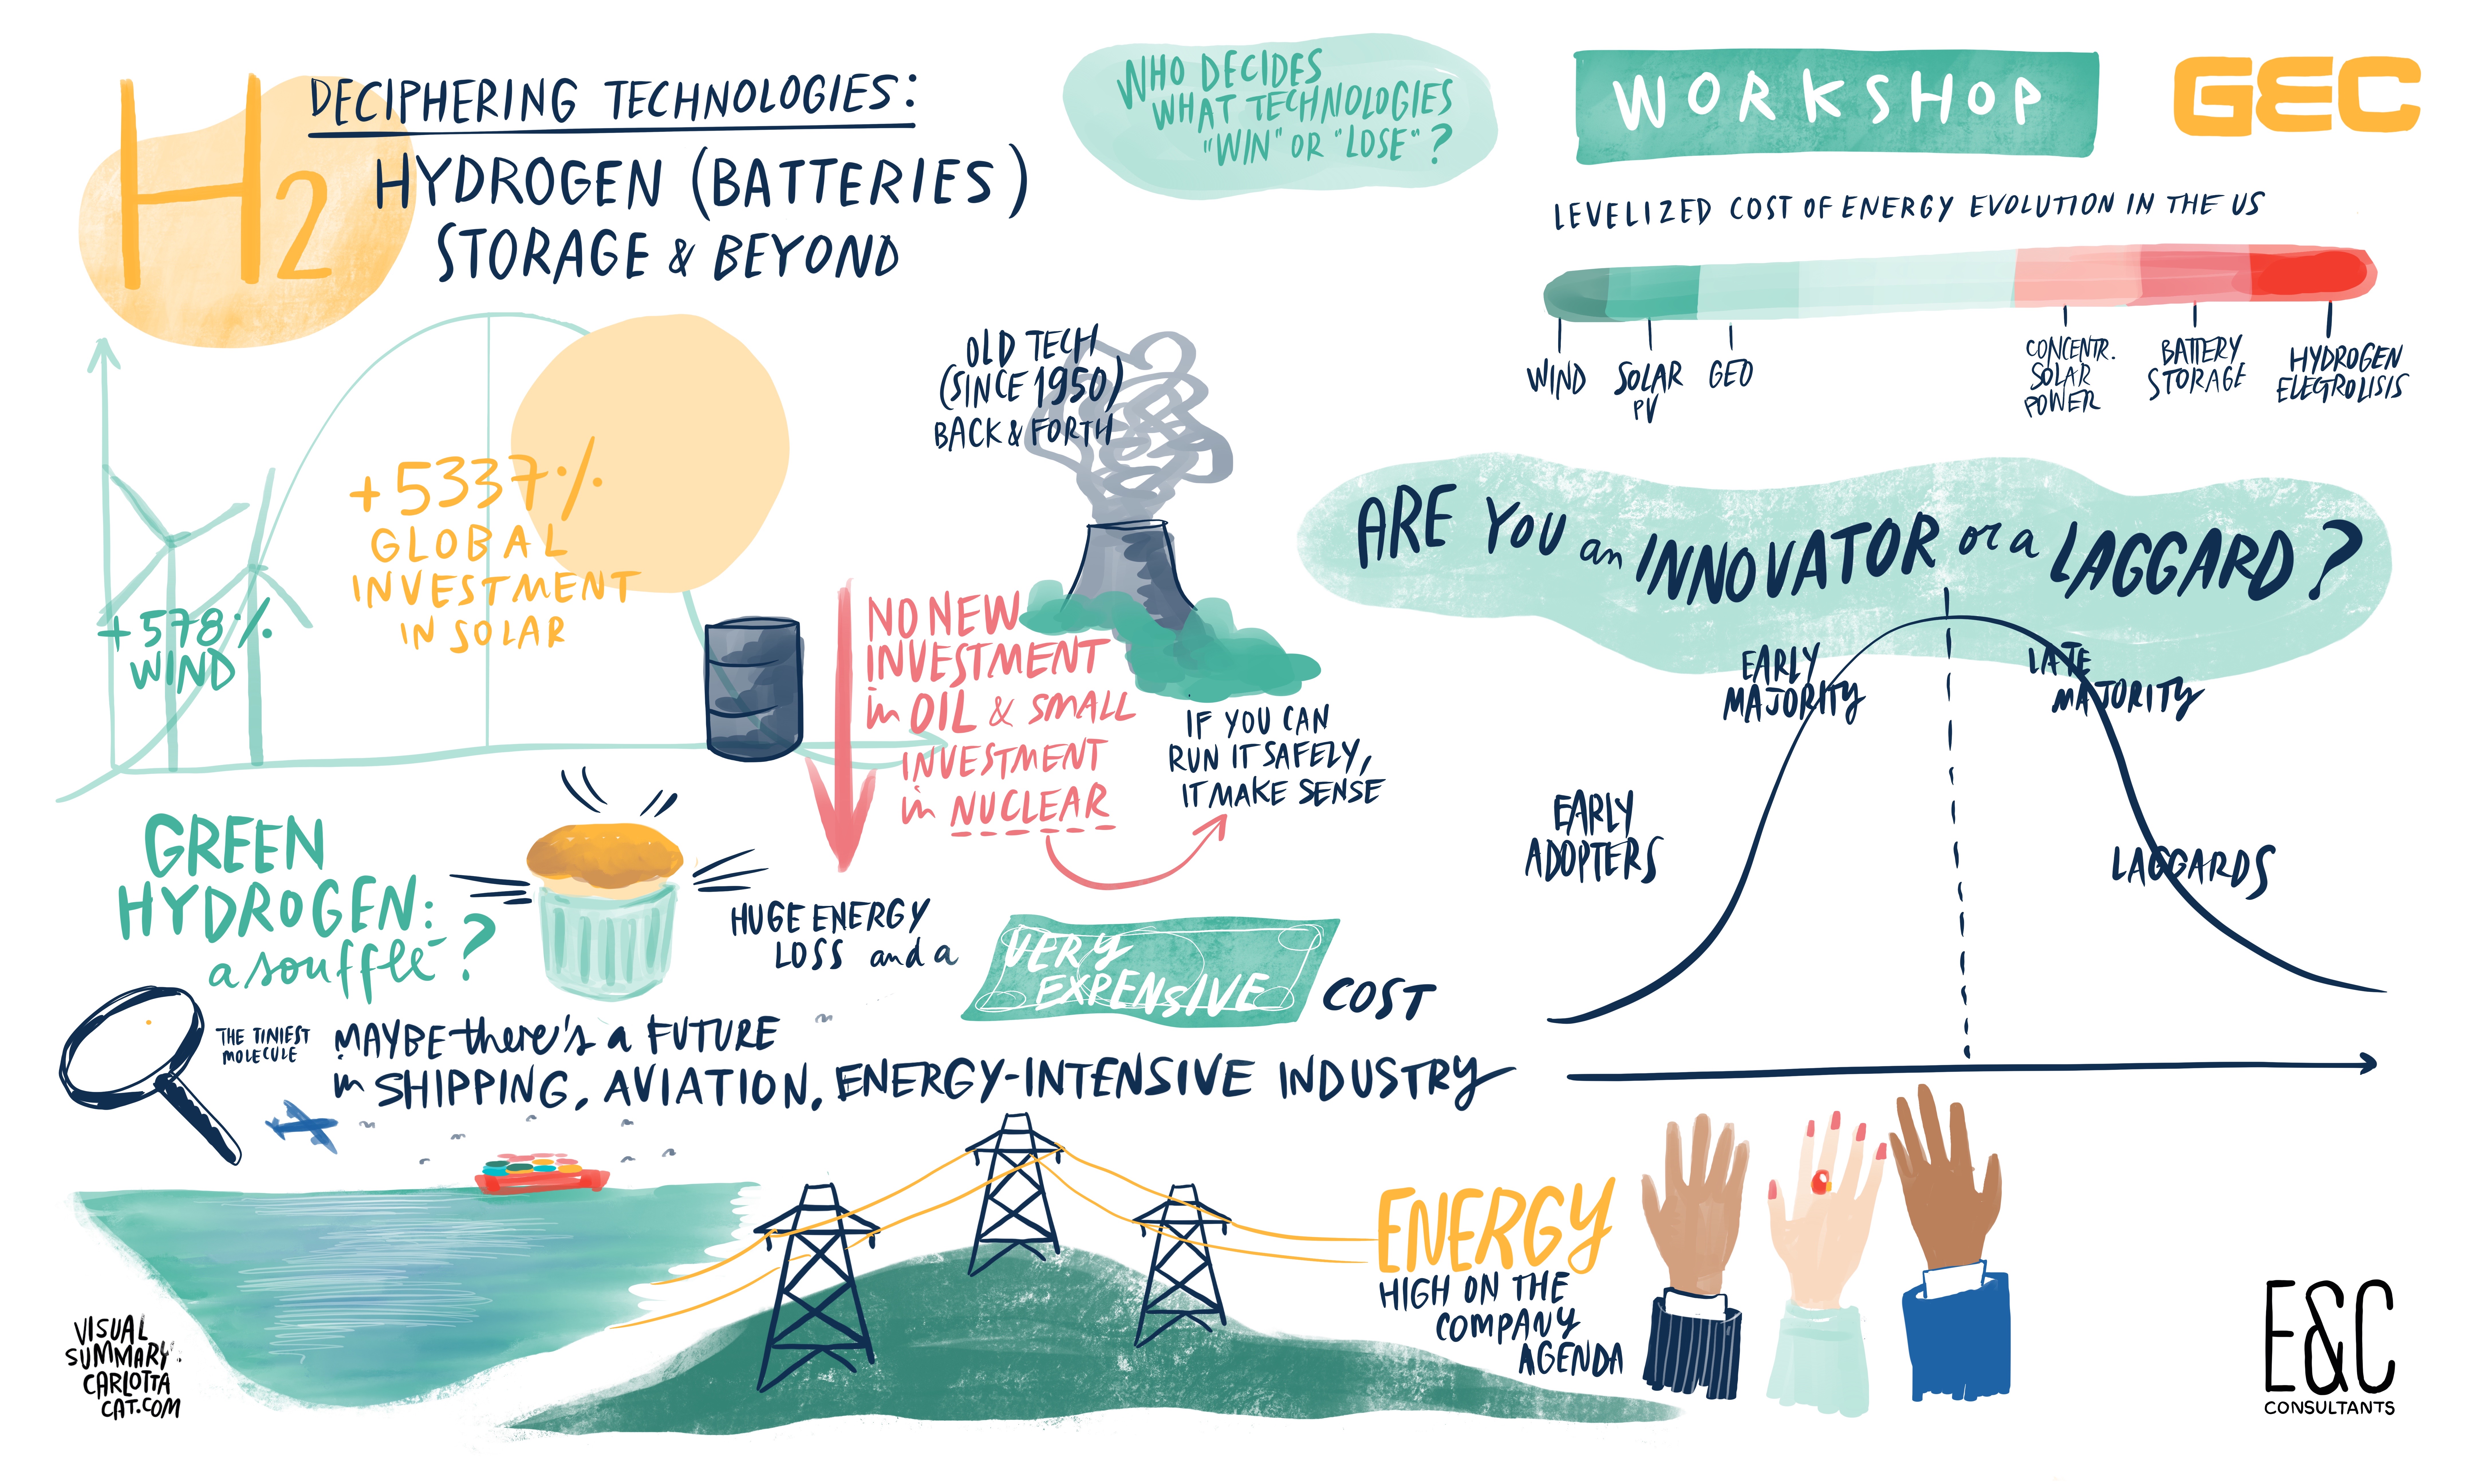 H2
DECIPHERING TECHNOLOGIES:
HYDROGEN (BATTERIES)
STORAGE & BEYOND
WHO DECIDES
WHAT TECHNOLOGIES
"WIN" OR "LOSE"?
WORKSHOP
GEC
LEVELIZED COST OF ENERGY EVOLUTION IN THE US
WIND
SOLAR
PV
GEO
CONCENTR.
SOLAR
POWER
BATTERY
STORAGE
HYDROGEN
ELECTROLISIS
+578%
WIND
+5337%
GLOBAL
INVESTMENT
IN SOLAR
OLD TECH
(SINCE 1950)
BACK & FORTH
NO NEW
INVESTMENT
in OIL & SMALL
INVESTMENT
in NUCLEAR
IF YOU CAN
RUN IT SAFELY,
IT MAKE SENSE
ARE YOU an INNOVATOR or a LAGGARD?
EARLY
MAJORITY
LATE
MAJORITY
EARLY
ADOPTERS
LAGGARDS
GREEN
HYDROGEN:
a soufflé?
HUGE ENERGY
LOSS and a
VERY
EXPENSIVE
COST
THE TINIEST
MOLECULE
MAYBE there's a FUTURE
in SHIPPING, AVIATION, ENERGY-INTENSIVE INDUSTRY
ENERGY
HIGH ON THE
COMPANY
AGENDA
VISUAL
SUMMARY.
CARLOTTA
CAT.COM
E&C
CONSULTANTS